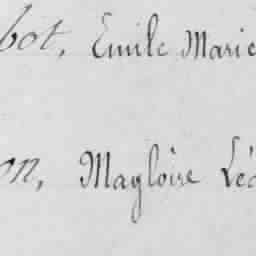 bot, Emile Marie
on, Magloire Léo